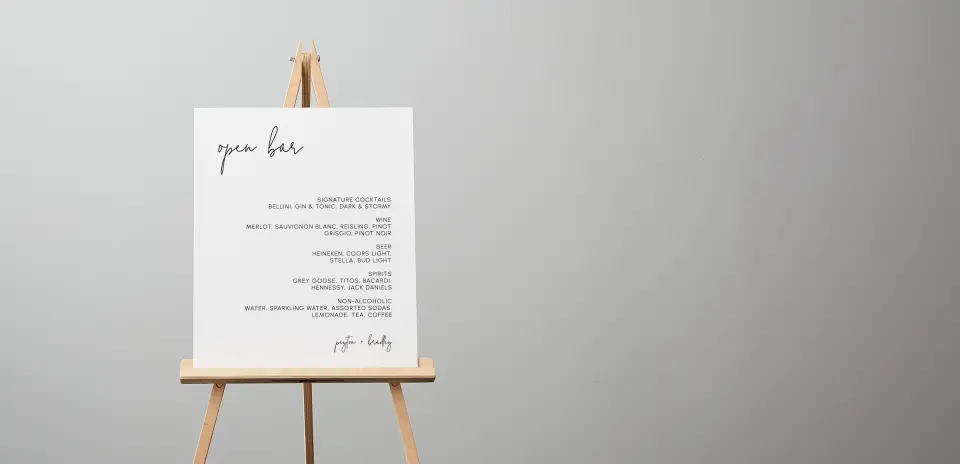 open bar
SIGNATURE COCKTAILS
BELLINI, GIN & TONIC, DARK & STORMY
WINE
MERLOT, SAUVIGNON BLANC, REISLING, PINOT
GRISGIO, PINOT NOIR
BEER
HEINEKEN, COORS LIGHT,
STELLA, BUD LIGHT
SPIRITS
GREY GOOSE, TITOS, BACARDI,
HENNESSY, JACK DANIELS
NON-ALCOHOLIC
WATER, SPARKLING WATER, ASSORTED SODAS,
LEMONADE, TEA, COFFEE
peyton + bradley